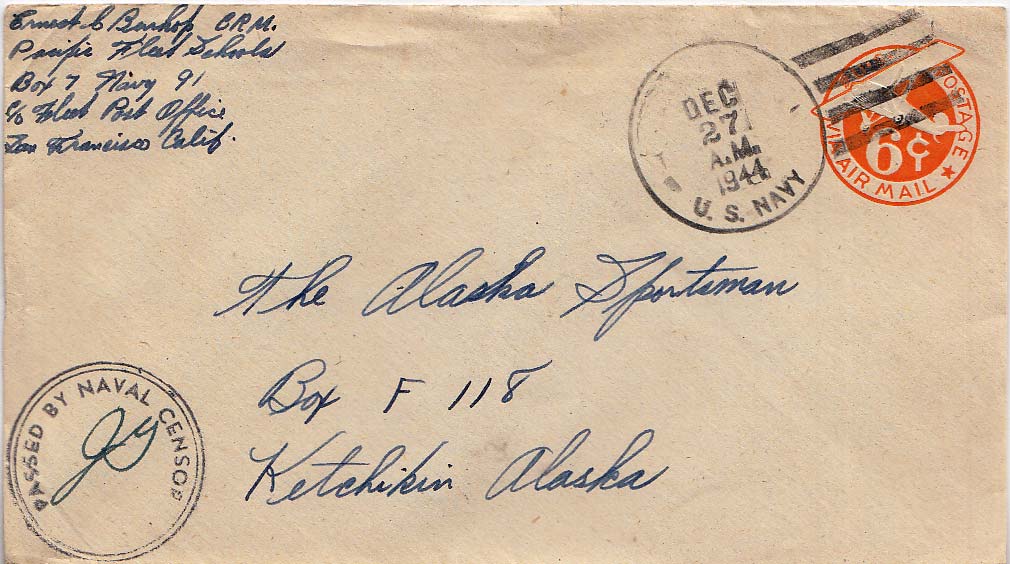 Ernest C Burhop C.R.M.
Pacific Fleet Schools
Box 7 Navy 91
c/o Fleet Post Office
San Francisco Calif.
DEC
27
A.M.
1944
U. S. NAVY
POSTAGE
VIA AIR MAIL
6¢
The Alaska Sportsman
Box F 118
Ketchikin Alaska
PASSED BY NAVAL CENSOR